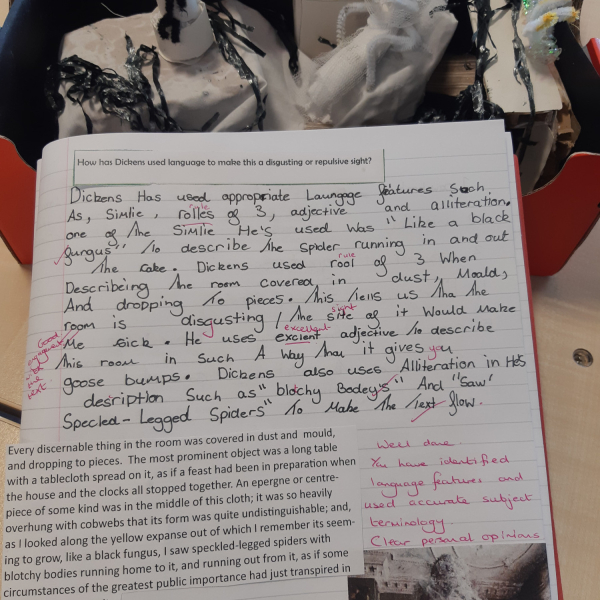 How has Dickens used language to make this a disgusting or repulsive sight?
Dickens Has used appropriate Laungage features Such
As, Simlie, rolles of 3, adjective and alliteration.
rule
one of the Simlie He's used was "Like a black
fungus" to describe the spider running in and out
the cake. Dickens used rool of 3 When
rule
Describeing the room covered in dust, Moald,
And dropping to pieces. this tells us tha the
room is disgusting / the site of it Would Make
sight
Me Sick. He uses excient adjective to describe
excellent
this room in Such A Way that it gives you
goose bumps. Dickens also uses Alliteration in He's
desription Such as "blochy Bodey's" And "Saw
Specled-Legged Spiders" To Make the text flow.
Good
engagement
with
the
text
Well done.
You have identified
language features and
used accurate subject
terminology.
Clear personal opinions
Every discernable thing in the room was covered in dust and mould,
and dropping to pieces. The most prominent object was a long table
with a tablecloth spread on it, as if a feast had been in preparation when
the house and the clocks all stopped together. An epergne or centre-
piece of some kind was in the middle of this cloth; it was so heavily
overhung with cobwebs that its form was quite undistinguishable; and,
as I looked along the yellow expanse out of which I remember its seem-
ing to grow, like a black fungus, I saw speckled-legged spiders with
blotchy bodies running home to it, and running out from it, as if some
circumstances of the greatest public importance had just transpired in